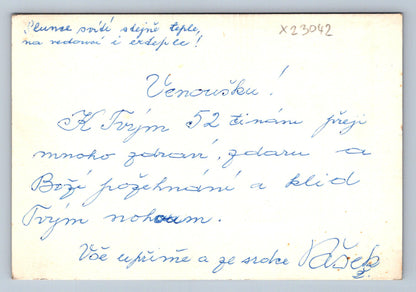 Slunce svítí stejně teple,
na vedoucí i erteple!
x23042
Venoušku!
K Tvým 52 tinám přeji
mnoho zdraví, zdaru a
Boží požehnání a klid
Tvým nohoum.
Vše upřímě a ze srdce Vašek